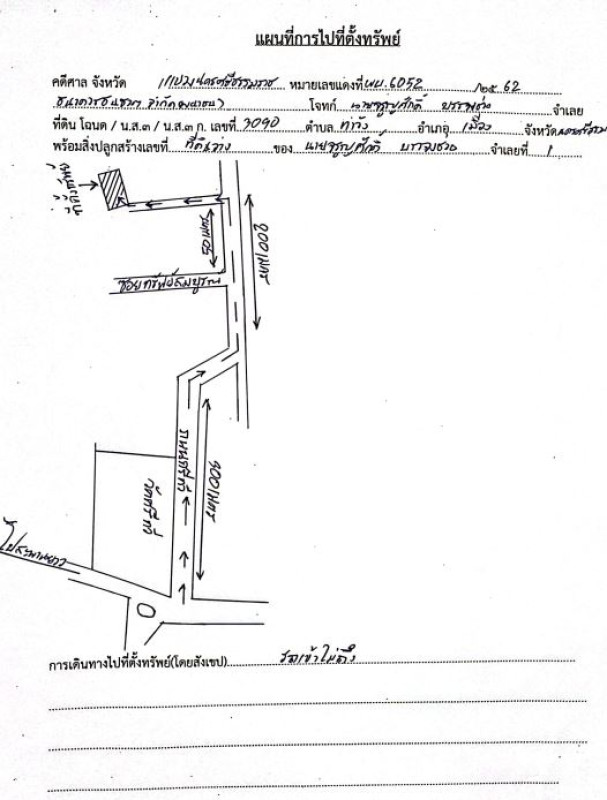 แผนที่การไปที่ตั้งทรัพย์
คดีศาล จังหวัด แขวงนครศรีธรรมราช หมายเลขแดงที่ ผบ.6052 /๒๕ 62
ธนาคารธนชาต จำกัด(มหาชน) โจทก์ นายจรูญศักดิ์ จำเลย
ที่ดิน โฉนด / น.ส.๓ / น.ส.๓ ก. เลขที่ 3090 ตำบล ท่าวัง อำเภอ เมือง จังหวัด นครศรีฯ
พร้อมสิ่งปลูกสร้างเลขที่ ที่ดินว่าง ของ นายจรูญศักดิ์ จำเลยที่ 1
ที่ตั้งทรัพย์
50 เมตร
200 เมตร
ซอยทรัพย์สมบูรณ์
ถนนศรีทวี
300 เมตร
วัดศรีทวี
ไปสะพานยาว
การเดินทางไปที่ตั้งทรัพย์(โดยสังเขป) รถเข้าไม่ถึง